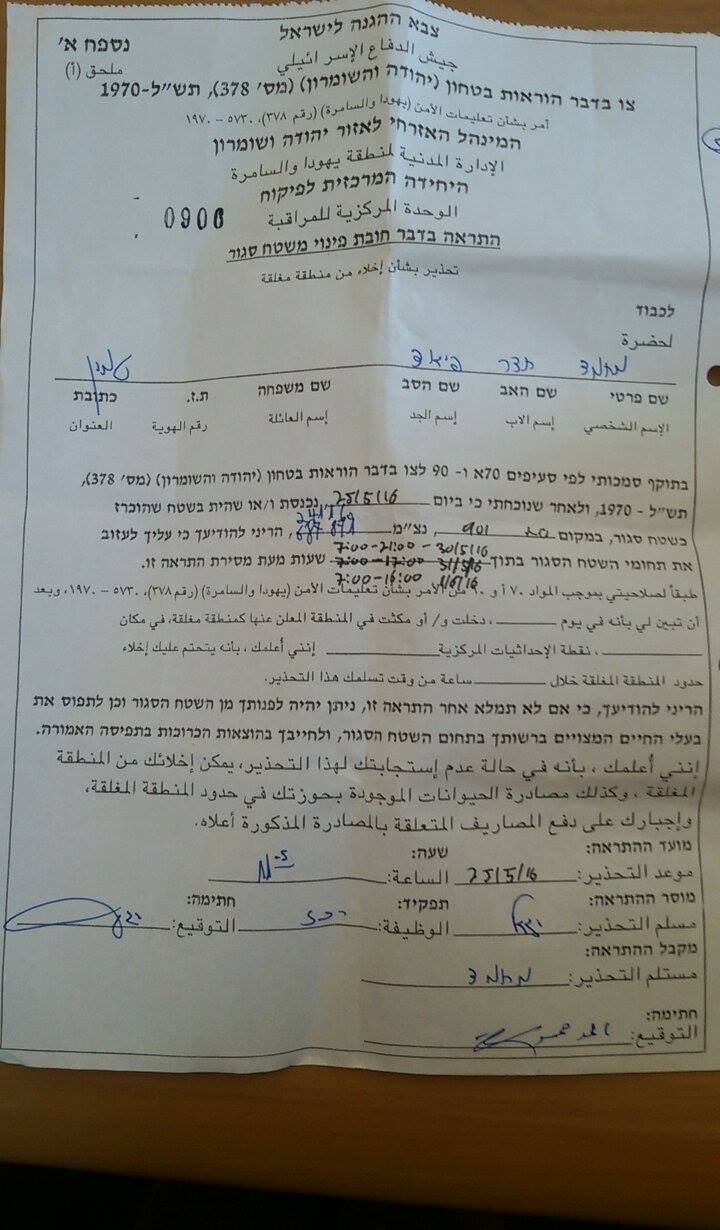 צבא ההגנה לישראל
נספח א'
جيش الدفاع الإسرائيلي
ملحق (أ)
צו בדבר הוראות בטחון (יהודה והשומרון) (מס' 378), תש"ל-1970
أمر بشأن تعليمات الأمن (يهودا والسامرة) (رقم ٣٧٨)، ٥٧٣٠ – ١٩٧٠
המינהל האזרחי לאזור יהודה ושומרון
الإدارة المدنية لمنطقة يهودا والسامرة
היחידה המרכזית לפיקוח
الوحدة المركزية للمراقبة
0906
התראה בדבר חובת פינוי משטח סגור
تحذير بشأن إخلاء من منطقة مغلقة
לכבוד
لحضرة
מחמד
שם פרטי שם האב שם הסב שם משפחה ת.ז. כתובת
الإسم الشخصي إسم الاب إسم الجد إسم العائلة رقم الهوية العنوان
בתוקף סמכותי לפי סעיפים 70א ו- 90 לצו בדבר הוראות בטחון (יהודה והשומרון) (מס' 378),
תש"ל - 1970, ולאחר שנוכחתי כי ביום 25/5/16 נכנסת ו/או שהית בשטח שהוכרז
כשטח סגור, במקום 901, נצ"מ, הריני להודיעך כי עליך לעזוב
7:00-21:00 - 30/5/16
את תחומי השטח הסגור בתוך 7:00-17:00 31/5/16 שעות מעת מסירת התראה זו.
7:00-16:00 1/6/16
طبقاً لصلاحيتي بموجب المواد ٧٠ أ و ٩٠ من الأمر بشأن تعليمات الأمن (يهودا والسامرة) (رقم ٣٧٨)، ٥٧٣٠ – ١٩٧٠، وبعد
أن تبين لي بأنه في يوم ، دخلت و/ أو مكثت في المنطقة المعلن عنها كمنطقة مغلقة، في مكان
، نقطة الإحداثيات المركزية إنني أعلمك، بأنه يتحتم عليك إخلاء
حدود المنطقة المغلقة خلال ساعة من وقت تسلمك هذا التحذير.
הריני להודיעך, כי אם לא תמלא אחר התראה זו, ניתן יהיה לפנותך מן השטח הסגור וכן לתפוס את
בעלי החיים המצויים ברשותך בתחום השטח הסגור, ולחייבך בהוצאות הכרוכות בתפיסה האמורה.
إنني أعلمك ، بأنه في حالة عدم إستجابتك لهذا التحذير، يمكن إخلائك من المنطقة
المغلقة ، وكذلك مصادرة الحيوانات الموجودة بحوزتك في حدود المنطقة المغلقة،
وإجبارك على دفع المصاريف المتعلقة بالمصادرة المذكورة أعلاه.
מועד ההתראה: שעה:
موعد التحذير: 25/5/16 الساعة:
מוסר ההתראה: תפקיד: חתימה:
مسلم التحذير: الوظيفة: التوقيع:
מקבל ההתראה:
مستلم التحذير: מחמד
חתימה:
التوقيع: